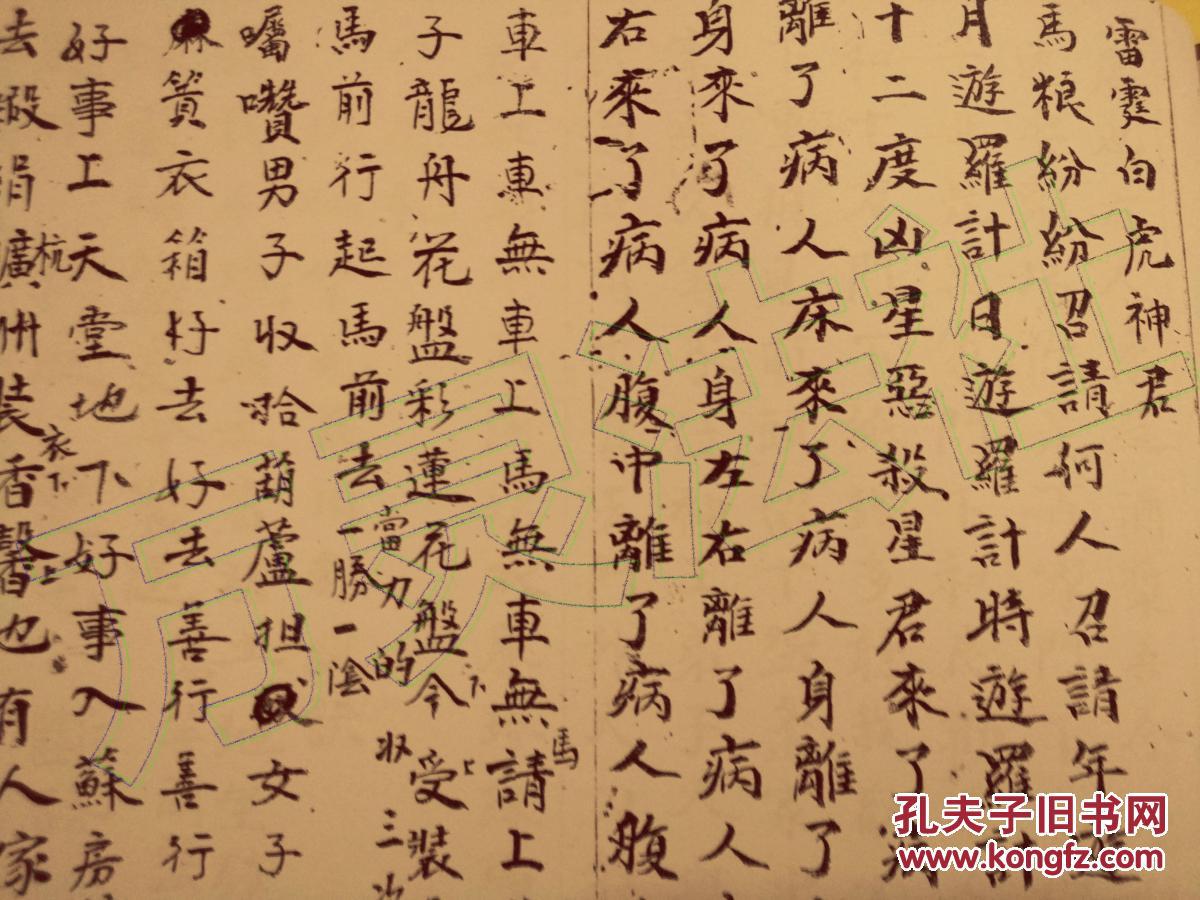 雷霆白虎神君
馬粮紛紛召請何人召請年遊
月遊羅計日遊羅計時遊羅計
十二度凶星惡殺星君來了病
離了病人床來了病人身離了
身來了病人身左右離了病人
右來了病人腹中離了病人腹
車上車無車上馬無車無請上
馬
子龍舟花盤彩蓮花盤今受裝
下
上
當力的収三次
馬前行起馬前去一勝一陰
囑囋男子収拾葫蘆担女子
籫衣箱好去好去善行善行
好事工天堂地下好事入蘇房
去緞絹廣州裝香馨也有人家
杭
衣下
上
孔夫子旧书网
www.kongfz.com